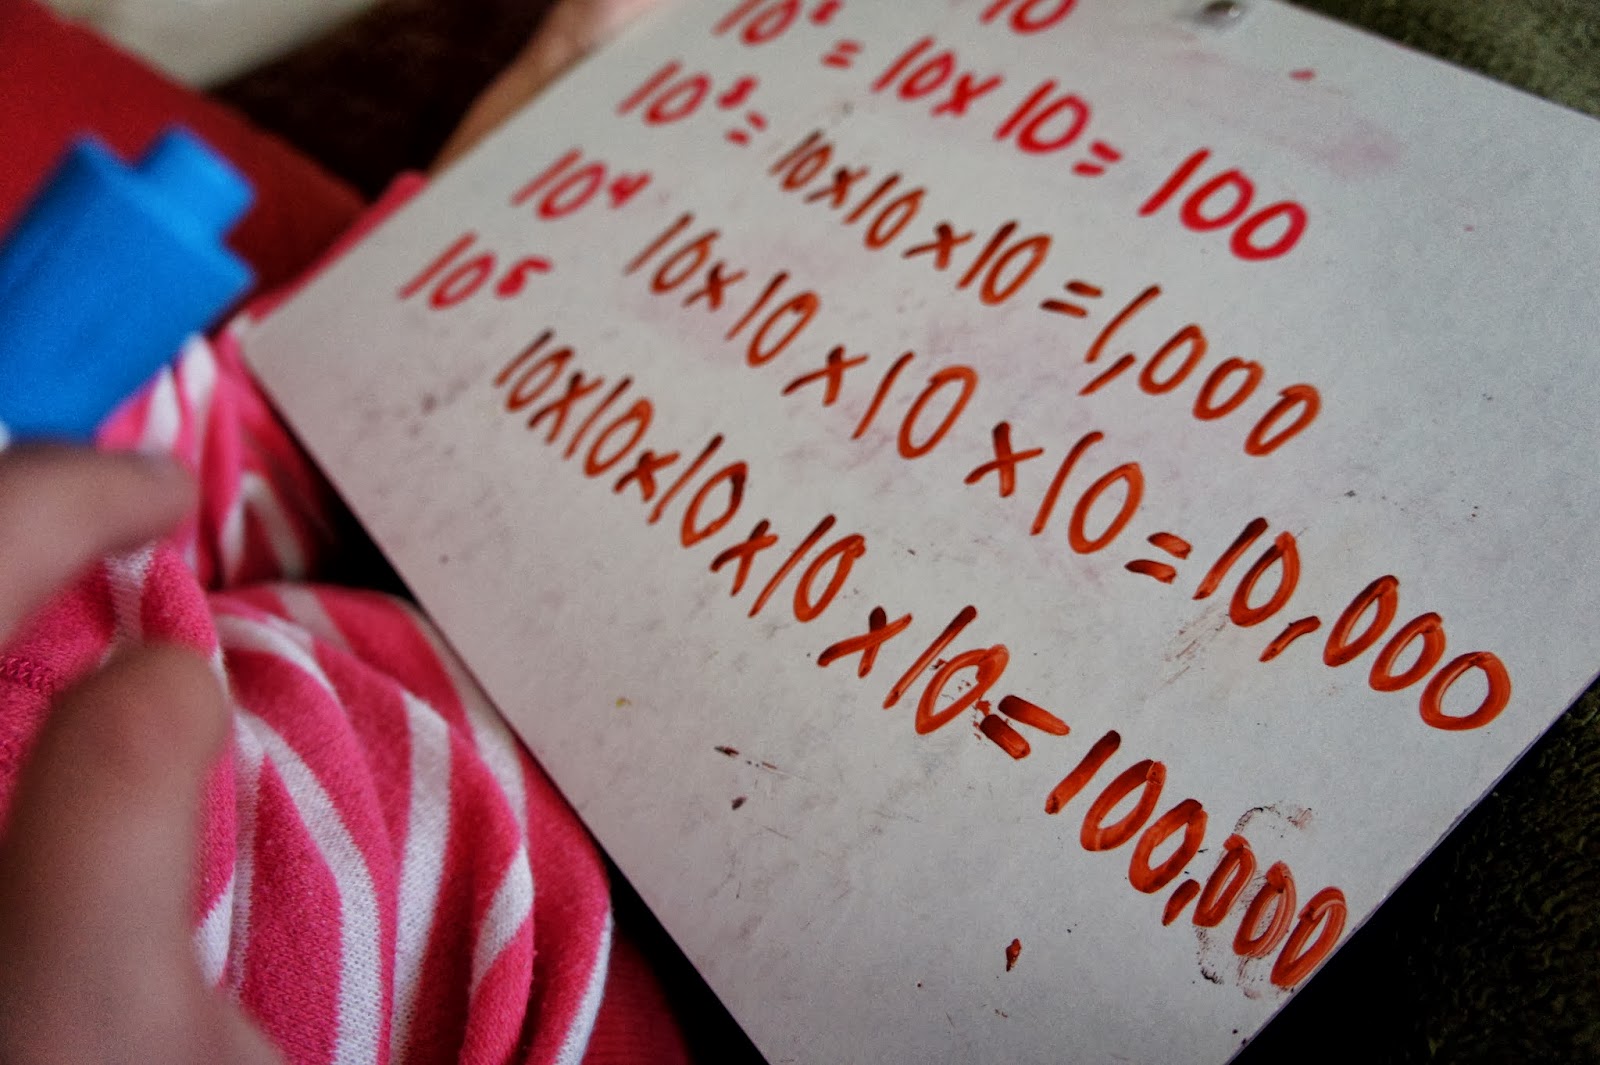 10
10² = 10x10 = 100
10³ = 10x10x10 = 1,000
10⁴ 10x10x10x10 = 10,000
10⁵ 10x10x10x10x10 = 100,000